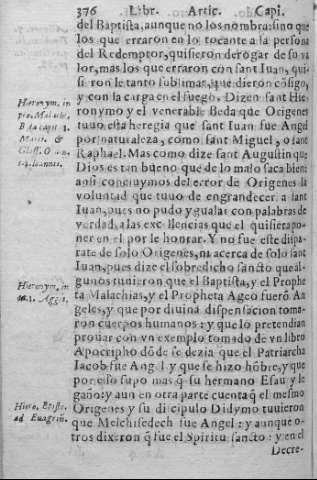 376 Libr. Artic. Capi.
del Baptista, aunque no los nombra: sino que
los que erraron en lo tocante a la persona
del Redemptor, quisieron derogar de su va
lor, mas los que erraron con sant Iuan, qui
sieron le tanto sublimar, que dieron consigo,
y con la carga en el fuego. Dizen sant Hie
ronymo y el venerable Beda que Origenes
tuuo esta heregia que sant Iuan fue Angel
por naturaleza, como sant Miguel, o sant
Raphael. Mas como dize sant Augustin que
Dios es tan bueno que de lo malo saca bien:
ansi concluymos del error de Origenes la
voluntad que tuuo de engrandecer a sant
Iuan, pues no pudo ygualar con palabras de
verdad, a las excellencias que el quisiera po-
ner en el por le honrar. Y no fue este dispa-
rate de solo Origenes, ni acerca de solo sant
Iuan, pues dize el sobredicho sancto que al-
gunos tuuieron que el Baptista, y el Prophe
ta Malachias, y el Propheta Ageo fueron An
geles, y que por diuina dispensacion toma-
ron cuerpos humanos: y que lo pretendian
prouar con vn exemplo tomado de vn libro
Apocripho dõde se dezia que el Patriarcha
Iacob fue Angel y que se hizo hõbre, y que
por esso supo mas q̃ su hermano Esau y le
gaño: y aun en otra parte cuenta q̃ el mesmo
Origenes y su dicipulo Didymo tuuieron
que Melchisedech fue Angel: y aunque o-
tros dixeron q̃ fue el Spiritu sancto: y en el
Decre-
Hieronym. in
pro. Malach.
Beda capit. 1.
Marci. &
Hieronym. in
Aggei.
Hiero. Epist.
ad Euagriũ.